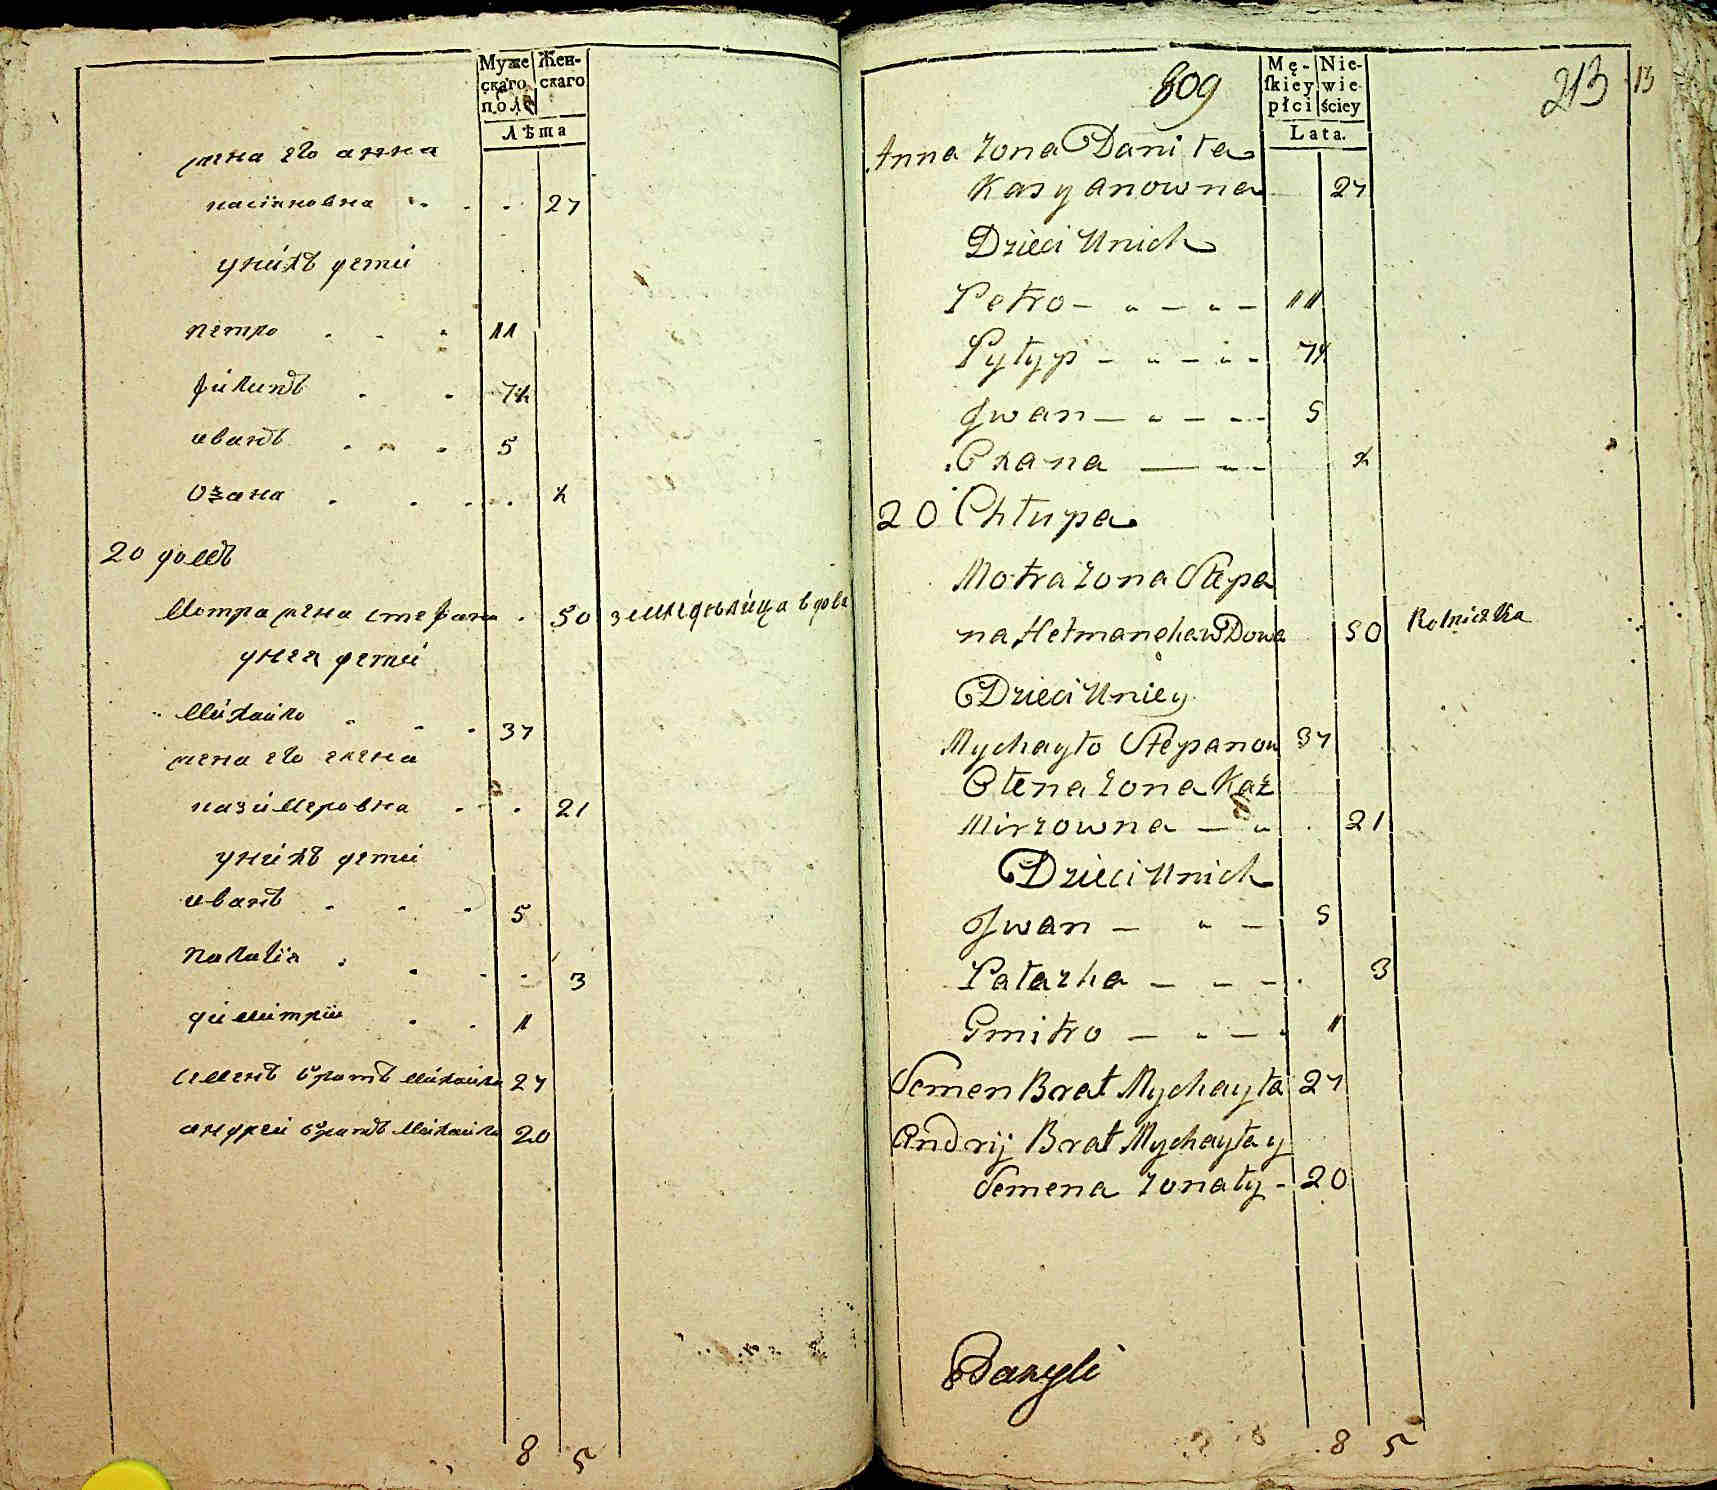 Муже Жен-
скаго скаго
пола
Лѣта
жена его анна
касіяновна 27
унихъ детей
петро 11
филипъ 7½
иванъ 5
Оѯана ½
20 домъ
Мотра жена стефана 50 земледѣлица вдова
унея детей
Михайло 37
жена его елена
казимеровна 21
унихъ детей
иванъ 5
Палагія 3
димитрій 1
семенъ братъ михайла 27
андрей братъ михайла 20
8 5
809
Mę- Nie-
ſkiey wie
płci ściey
Lata.
213 13
Anna żona Daniła
Kasyanowna 27
Dzieci Unich
Petro 11
Pyłyp 7½
Jwan 5
Oxana ½
20 Chłupa
Motra żona Stepa
na Hetmanchaw Dowa 50 Rolniczka
Dzieci Uniey
Mychayło Stepanow 37
Ołena żona Kaź
Mirzowna 21
Dzieci Unich
Jwan 5
Pałazha 3
Dmitro 1
Semen Brat Mychayła 27
Andrij Brat Mychayła y
Semena żonaty 20
8 5